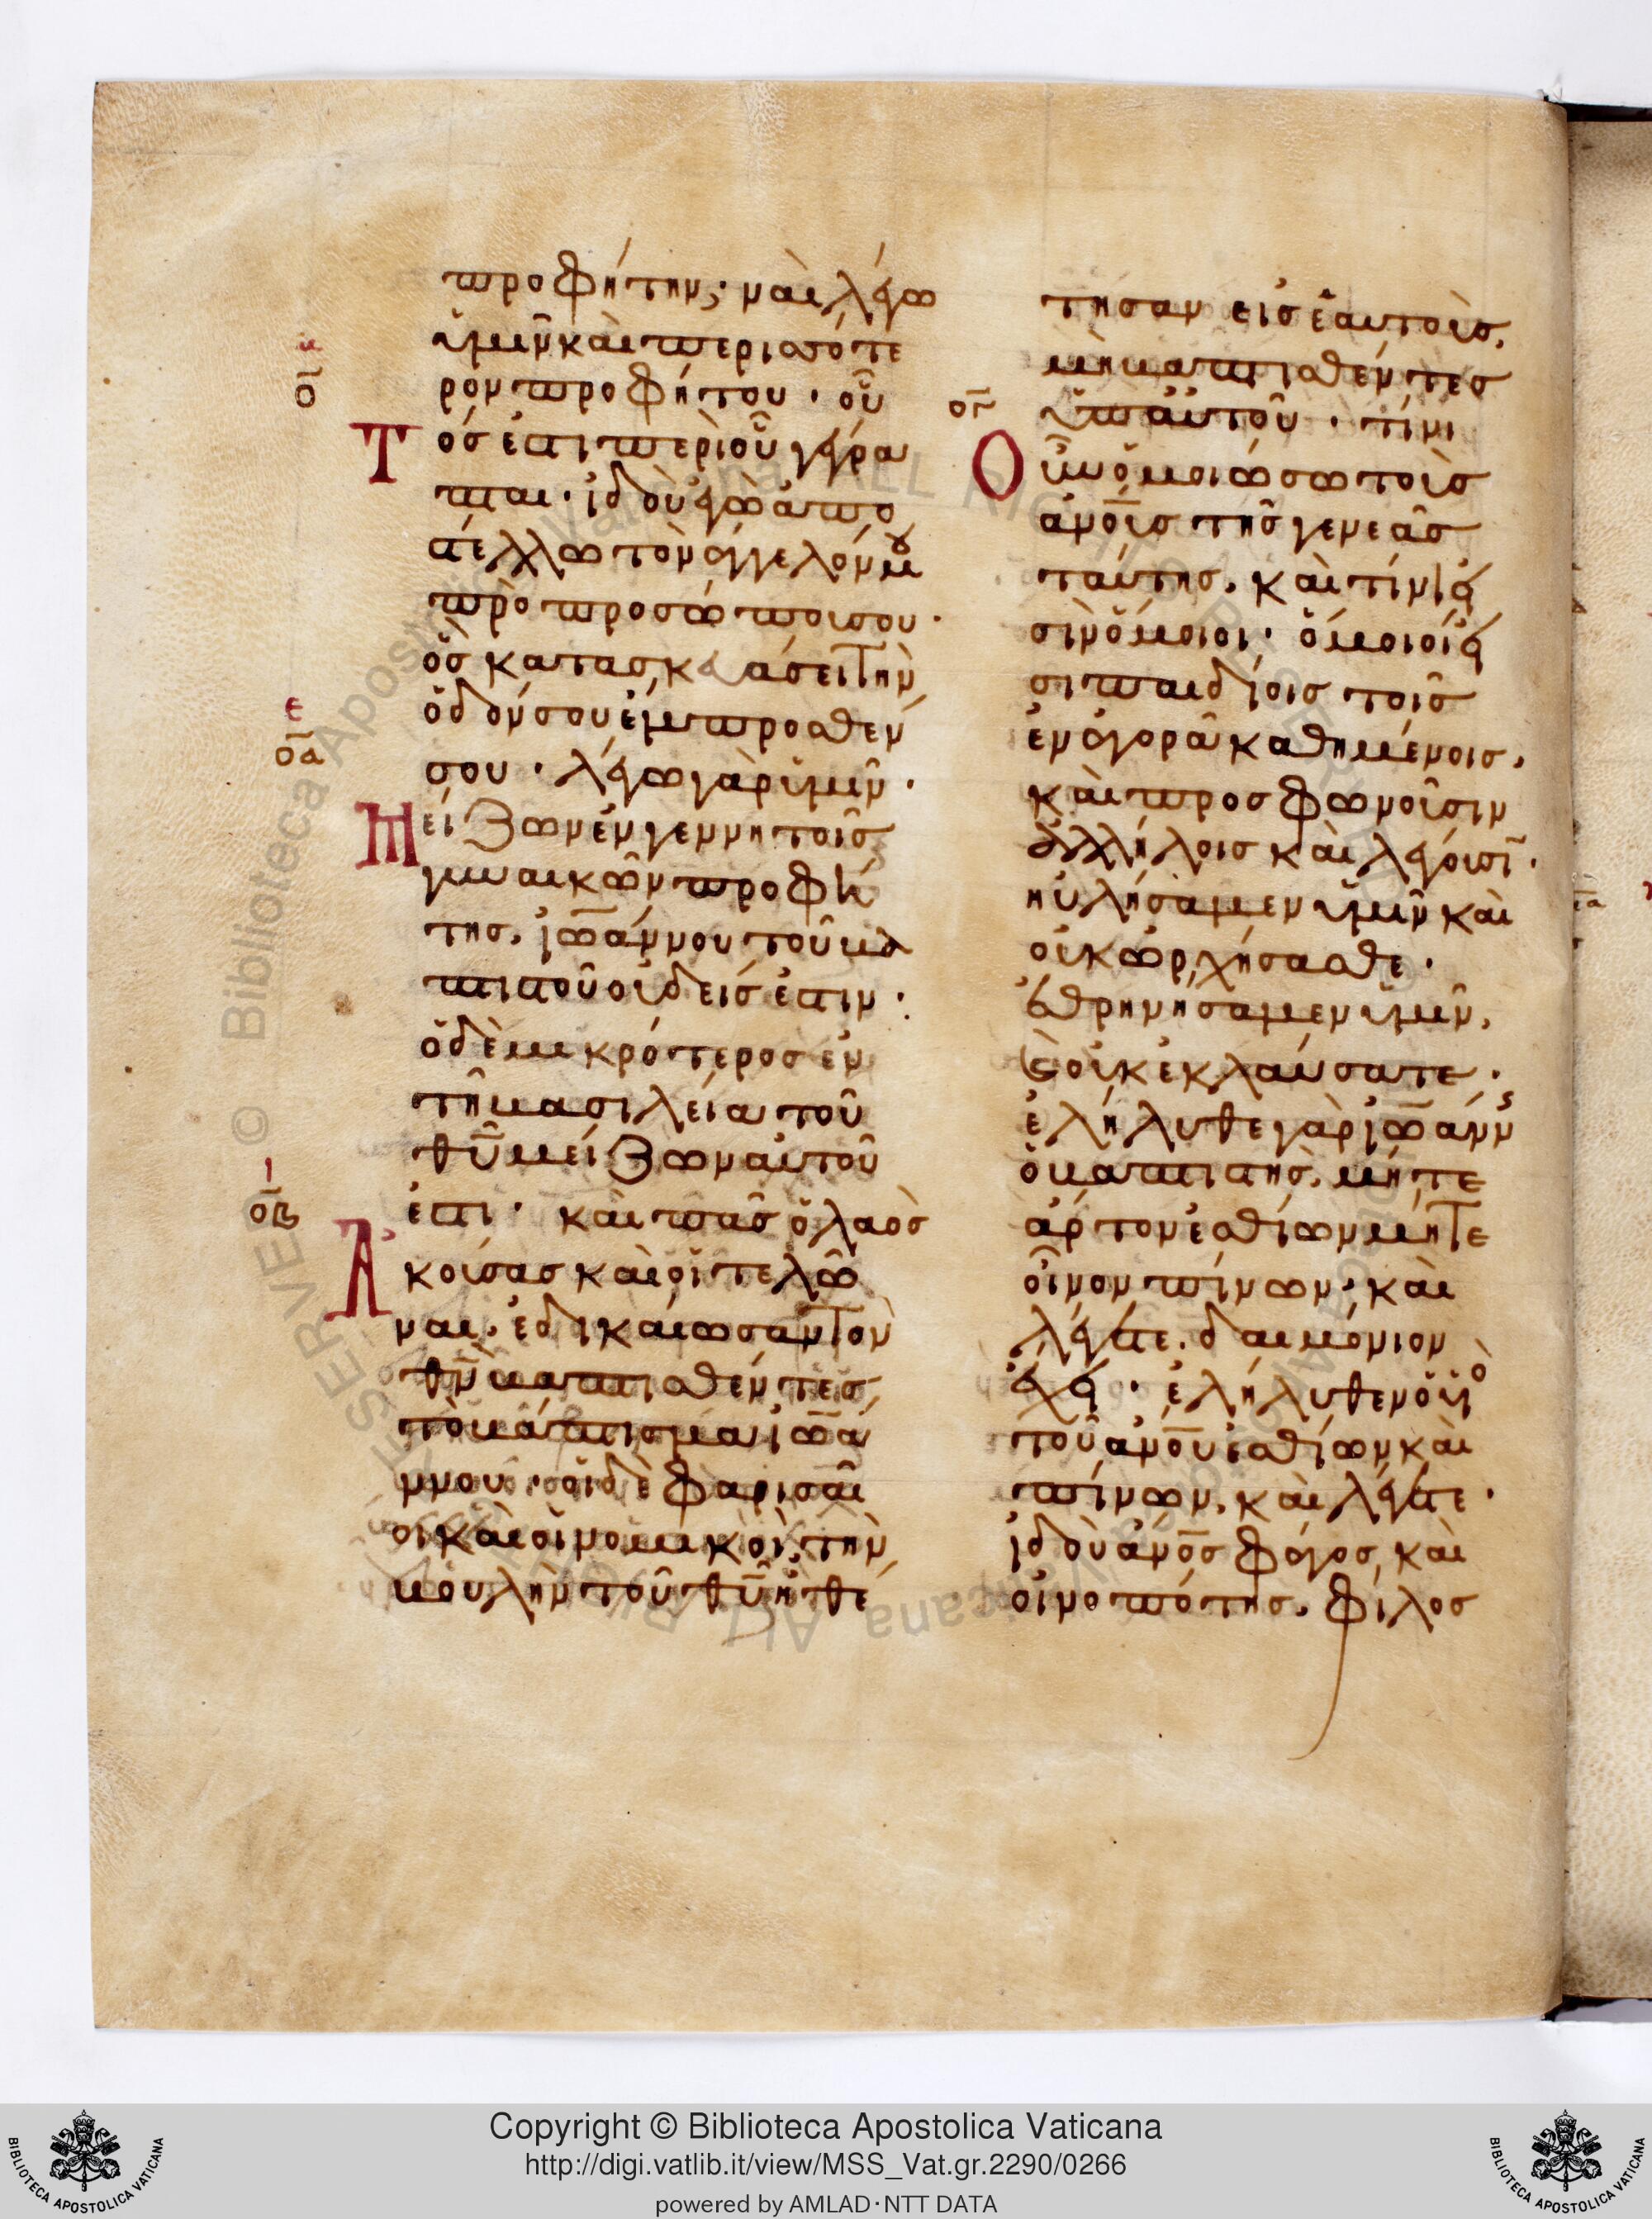 προφήτην; ναὶ λέγω
ὑμῖν καὶ περισσότε
ρον προφήτου · οὗ
Τός ἐστι περὶ οὗ γέγρα
πται · ἰδοὺ ἐγὼ ἀπο
στέλλω τὸν ἄγγελόν μου
πρὸ προσώπου σου ·
ὃς κατασκευάσει τὴν
ὁδόν σου ἔμπροσθέν
σου · λέγω γὰρ ὑμῖν ·
Μείζων ἐν γεννητοῖς
γυναικῶν προφή
της, ἰωάννου τοῦ βα
πτιστοῦ οὐδείς ἐστιν ·
ὁ δὲ μικρότερος ἐν
τῆ βασιλεία τοῦ
θ̅υ̅ μείζων αὐτοῦ
ἐστι · καὶ πᾶς ὁ λαὸς
Ἀκούσας καὶ οἱ τελῶ
ναι, ἐδικαίωσαν τὸν
θ̅ν̅ βαπτισθέντες
τὸ βάπτισμα ἰωά
ννου · οἱ δὲ φαρισαῖ
οι καὶ οἱ νομικοὶ τὴν
βουλὴν τοῦ θ̅υ̅ ἠθέ
τησαν εἰς ἑαυτοὺς,
μὴ βαπτισθέντες
ὑπ αὐτοῦ · τίνι
Οὖν ὁμοιώσω τοὺς
α̅ν̅ο̅υ̅ς τῆς γενεᾶς
ταύτης, καὶ τίνι εἰ
σὶν ὅμοιοι · ὅμοιοί εἰ
σι παιδίοις τοῖς
ἐν ἀγορᾶ καθημένοις,
καὶ προσφωνοῦσιν
ἀλλήλοις καὶ λέγουσιν ·
ηὐλήσαμεν ὑμῖν καὶ
οὐκ ὠρχήσασθε ·
ἐθρηνήσαμεν ὑμῖν,
ϗ οὐκ ἐκλαύσατε ·
ἐλήλυθε γὰρ ἰωάνν
ὁ βαπτιστὴς, μήτε
ἄρτον ἐσθίων μήτε
οἶνον πίνων, καὶ
λέγετε, δαιμόνιον
ἔχει · ἐλήλυθεν ὁ υἱὸ
τοῦ α̅ν̅ο̅υ̅ ἐσθίων καὶ
πίνων, καὶ λέγετε ·
ἰδοὺ α̅ν̅ο̅ς̅ φάγος, καὶ
οἰνοπότης, φίλος
οα
οβ
ογ
ϵ
ι